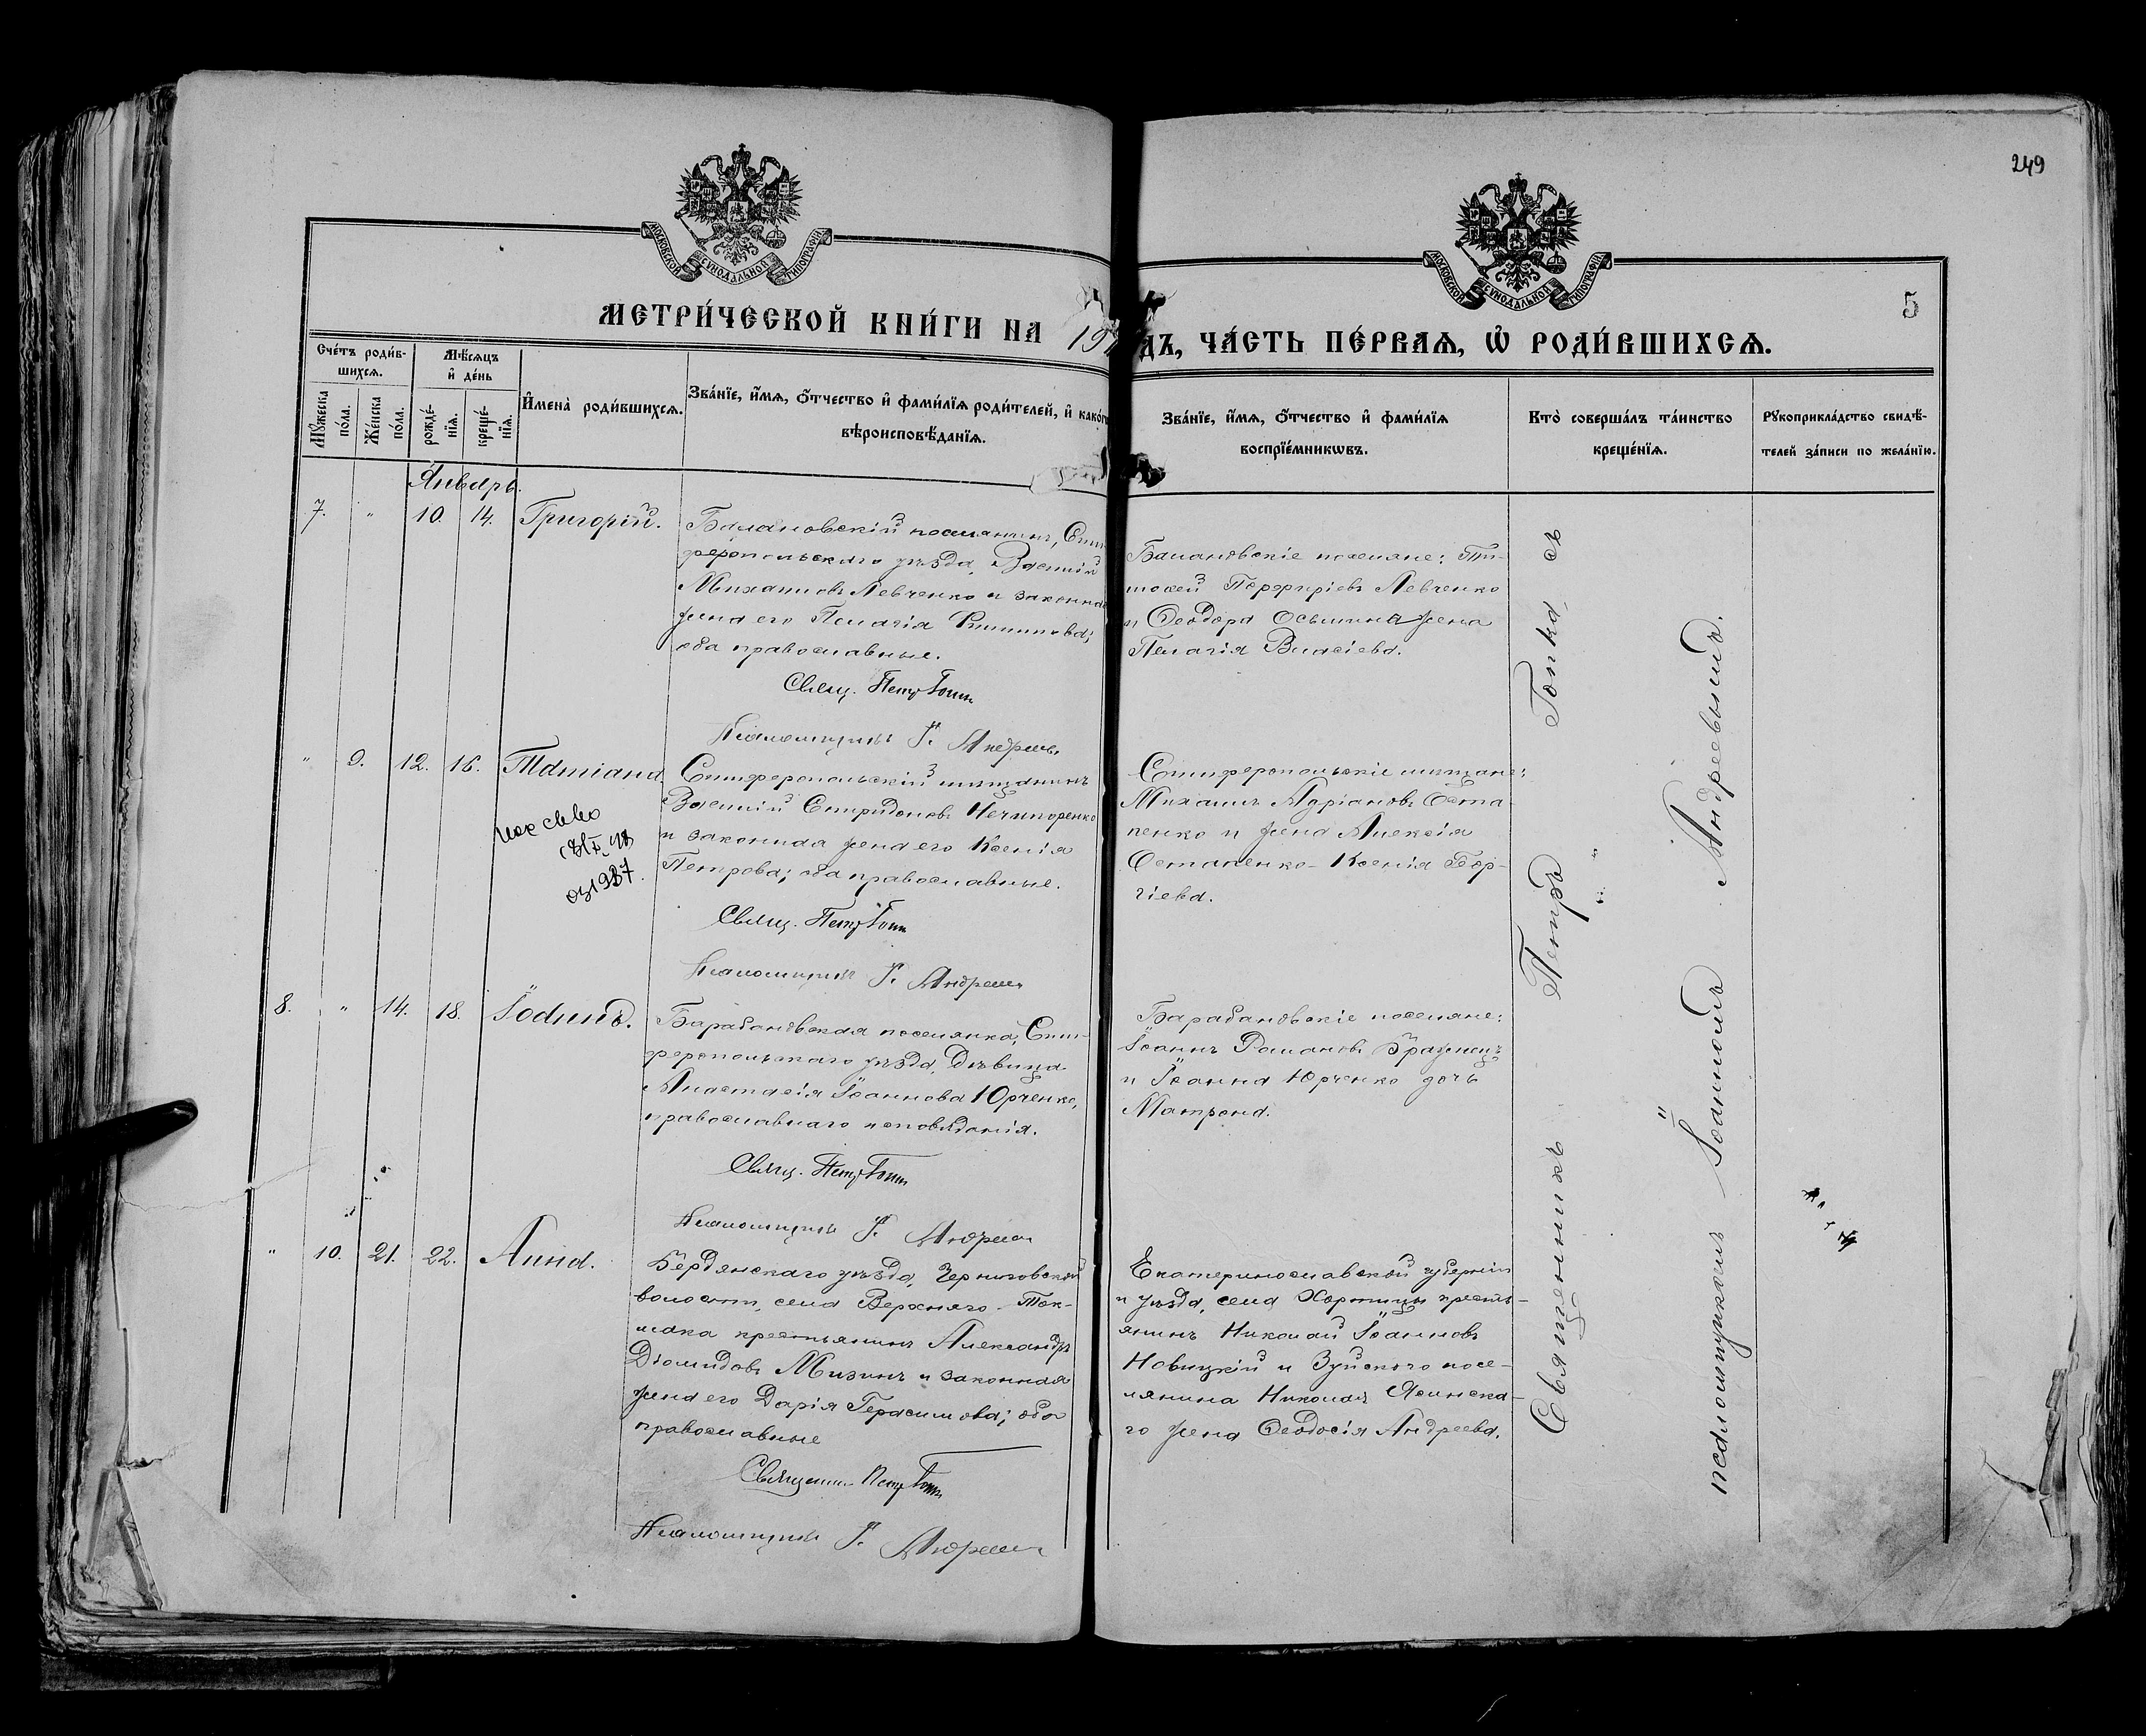 249
МОСКОВСКОЙ СѴНОДАЛЬНОЙ ТИПОГРАФІИ
МОСКОВСКОЙ СѴНОДАЛЬНОЙ ТИПОГРАФІИ
5
МЕТРИ́ЧЕСКОЙ КНИ́ГИ НА 19
ДЪ, ЧА́СТЬ ПЕ́РВАѦ, Ѡ҆ РОДИ́ВШИХСѦ.
Сче́тъ роди́в-
шихсѧ.
Мѣ́сѧцъ
и҆ де́нь
Мꙋ́жеска
по́ла.
Же́нска
по́ла.
рожде́-
нїѧ.
креще́-
нїѧ.
И҆мена̀ роди́вшихсѧ.
Зва́нїе, и҆́мѧ, ѻ҆́тчество и҆ фами́лїѧ роди́телей, и҆ како́г
вѣроисповѣ́данїѧ.
Зва́нїе, и҆́мѧ, ѻ҆́тчество и҆ фами́лїѧ
воспрїе́мникѡвъ.
Кто̀ соверша́лъ та́инство
креще́нїѧ.
Рꙋкоприкла́дство свидѣ́-
телей за́писи по жела́нїю.
Январь.
7. " 10. 14. Григорій.
Балановскій поселянинъ, Сим-
феропольскаго уѣзда, Василій
Михаиловъ Левченко и законная
жена его Пелагія Филиппова;
оба православные.
Свящ. Петръ Гопка
Псаломщикъ І. Андреевъ
Балановскіе поселяне: Ти-
моѳей Перфиріевъ Левченко
и Ѳеодора Осьмина жена
Пелагія Власіева.
" 9. 12. 16. Татіана
1937.
Симферопольскій мѣщанинъ
Василій Спиридоновъ Нечипоренко
и законная жена его Ксенія
Петрова; оба православные.
Свящ. Петръ Гопка
Псаломщикъ І. Андреевъ
Симферопольскіе мѣщане:
Михаилъ Адріановъ Оста-
пенко и жена Алексія
Остапенко Ксенія Геор-
гіева.
8. " 14. 18. Іоаннъ.
Барабановская поселянка, Сим-
феропольскаго уѣзда, дѣвица
Анастасія Іоаннова Юрченко,
православнаго исповѣданія.
Свящ. Петръ Гопка
Псаломщикъ І. Андреевъ
Барабановскіе поселяне:
Іоаннъ Романовъ Браженецъ
и Іоанна Юрченко дочь
Матрона.
" 10. 21. 22. Анна.
Бердянскаго уѣзда, Черниговской
волости, села Верхняго-Ток-
мака крестьянинъ Александръ
Діомидовъ Мизинъ и законная
жена его Дарія Герасимова; оба
православные
Священник Петръ Гопка
Псаломщикъ І. Андреевъ
Екатеринославской губерніи
и уѣзда, села Хортицы кресть-
янинъ Николай Іоанновъ
Новицкій и Зуйскаго посе-
лянина Николая Ясинска-
го жена Ѳеодосія Андреева.
Священникъ Петръ Гопка съ
псаломщикомъ Іоанномъ Андреевымъ.